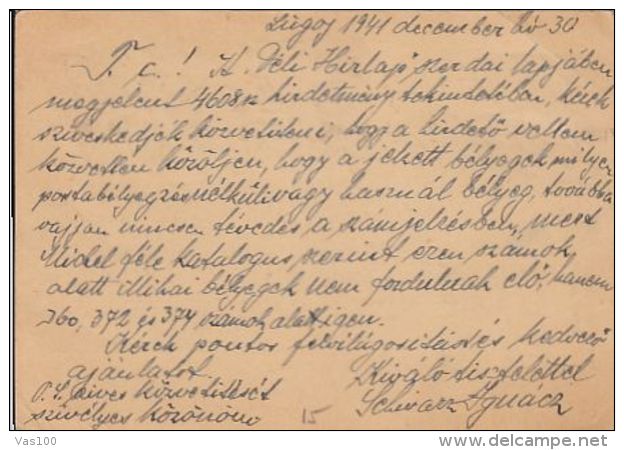 Lugoj 1941 december hó 30
T. c.! A "Déli Hirlap" szerdai lapjában
megjelent 4608 sz hirdetmény tekintetében, kérek
sziveskedjék közvetiteni, hogy a hirdető velem
közvetlen közöljen, hogy a jelzett bélyegek milyen
postabélyegzésnélküli vagy használ bélyeg, továbbá
vajjon nincsen tévedés a számjelzésben, mert
Michel féle katalogus szerint ezen számok
alatt Mihai bélyegek nem fordulnak elő, hanem
360, 372 és 374 számok alatt igen.
Kérek pontos felvilágositást és kedvező
ajánlatot. Kiváló tisztelettel
szives közvetitését Schwarz Ignácz
szivélyes köszönöm 15
Vas100
www.delcampe.net